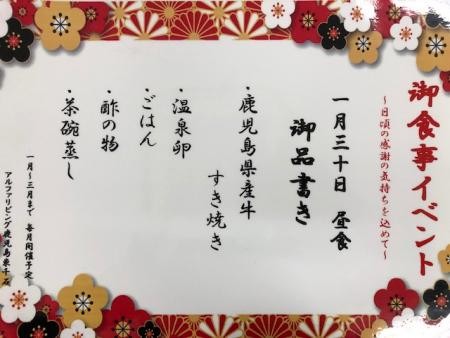 御食事イベント
~日頃の感謝の気持ちを込めて~
一月三十日 昼食
御品書き
・鹿児島県産牛
すき焼き
・温泉卵
・ごはん
・酢の物
・茶碗蒸し
一月~三月まで 毎月開催予定
アルファリビング鹿児島東千石